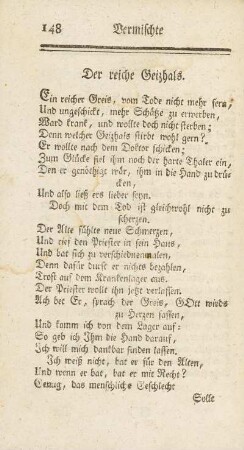 148 Vermischte
Der reiche Geizhals.
Ein reicher Greis, vom Tode nicht mehr fern,
Und ungeschickt, mehr Schätze zu erwerben,
Ward krank, und wollte doch nicht sterben;
Denn welcher Geizhals stirbt wohl gern?
Er wollte nach dem Doktor schicken;
Zum Glücke fiel ihm noch der harte Thaler ein,
Den er genöthigt wär, ihm in die Hand zu drü-
cken,
Und also ließ ers lieber seyn.
Doch mit dem Tod ist gleichwohl nicht zu
scherzen.
Der Alte fühlte neue Schmerzen,
Und rief den Priester in sein Haus,
Und bat sich zu verschiednenmalen,
Denn dafür durft er nichts bezahlen,
Trost auf dem Krankenlager aus.
Der Priester wolle ihn jetzt verlassen.
Ach bet Er, sprach der Greis, GOtt wirds
zu Herzen fassen,
Und komm ich von dem Lager auf:
So geb ich Ihm die Hand darauf,
Ich will mich dankbar finden lassen.
Ich weiß nicht, bat er für den Alten,
Und wenn er bat, bat er mit Recht?
Genug, das menschliche Geschlecht
Sollte